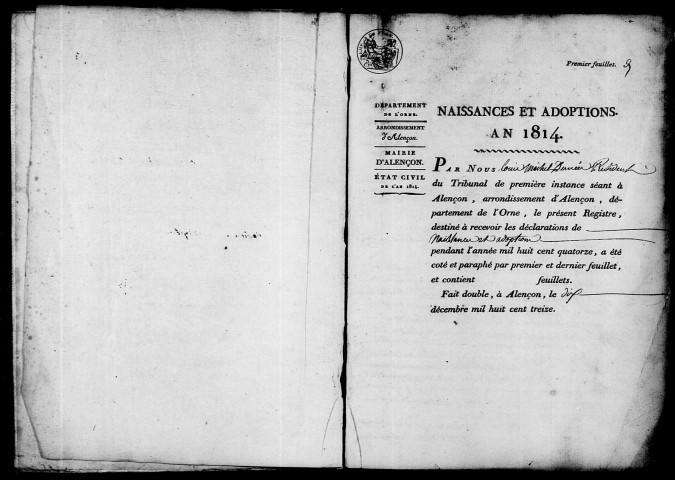 Premier feuillet.
DÉPARTEMENT
DE L'ORNE.
ARRONDISSEMENT
d'Alençon.
MAIRIE
D'ALENÇON.
ÉTAT CIVIL
DE L'AN 1814.
NAISSANCES ET ADOPTIONS.
AN 1814.
PAR NOUS Louis Michel Président
du Tribunal de première instance séant à
Alençon, arrondissement d'Alençon, dé-
partement de l'Orne, le présent Registre,
destiné à recevoir les déclarations de
Naissance et adoption
pendant l'année mil huit cent quatorze, a été
coté et paraphé par premier et dernier feuillet,
et contient feuillets.
Fait double, à Alençon, le dix
décembre mil huit cent treize.